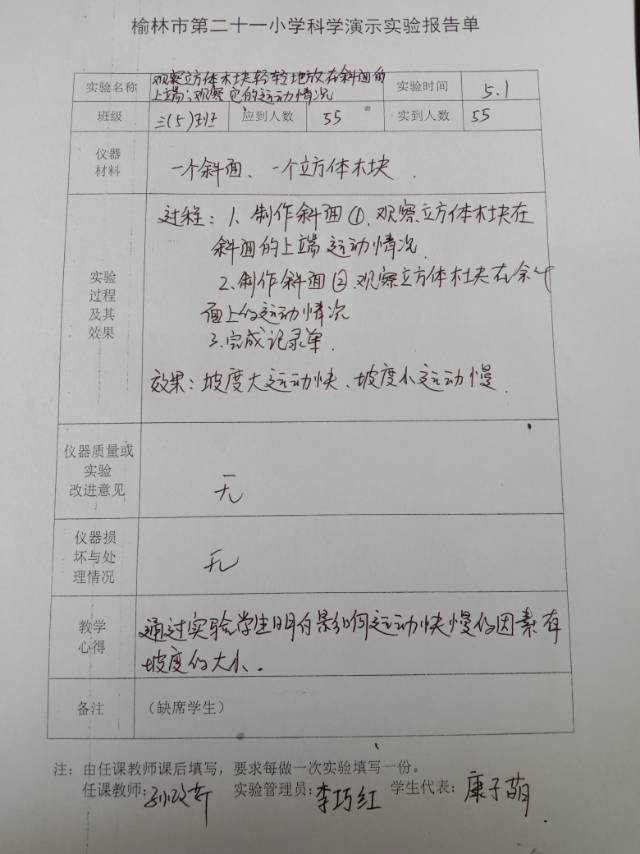 榆林市第二十一小学科学演示实验报告单
实验名称 观察立方体木块轻轻地放在斜面的上端,观察它的运动情况 实验时间 5.1
班级 三(5)班 应到人数 55 实到人数 55
仪器材料 一个斜面、一个立方体木块.
实验过程及其效果
过程:1、制作斜面①,观察立方体木块在
斜面的上端运动情况.
2、制作斜面②,观察立方体木块在斜
面上的运动情况
3、完成记录单.
效果:坡度大运动快、坡度小运动慢.
仪器质量或实验改进意见 无
仪器损坏与处理情况 无
教学心得 通过实验,学生明白影响运动快慢的因素有
坡度的大小.
备注 (缺席学生)
注:由任课教师课后填写,要求每做一次实验填写一份。
任课教师: 实验管理员:李巧红 学生代表:康子萌